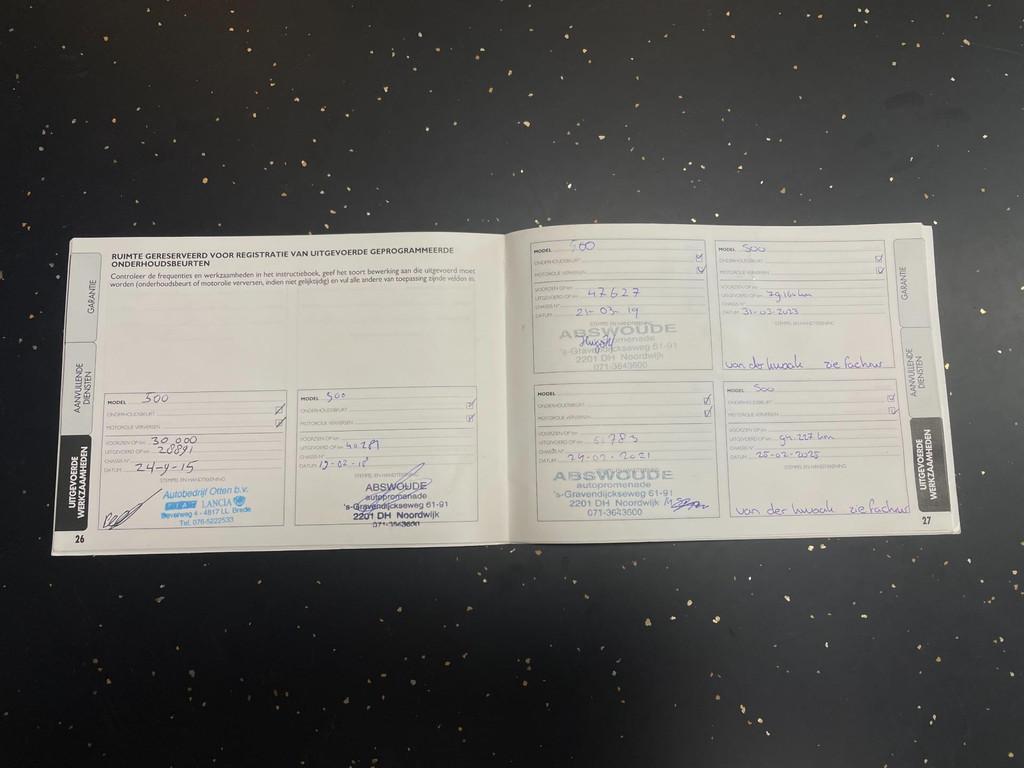 RUIMTE GERESERVEERD VOOR REGISTRATIE VAN UITGEVOERDE GEPROGRAMMEERDE
ONDERHOUDSBEURTEN
Controleer de frequenties en werkzaamheden in het instructieboek, geef het soort bewerking aan die uitgevoerd moet
worden (onderhoudsbeurt of motorolie verversen, indien niet gelijktijdig) en vul alle andere van toepassing zijnde velden in.
GARANTIE
AANVULLENDE
DIENSTEN
UITGEVOERDE
WERKZAAMHEDEN
MODEL 500
ONDERHOUDSBEURT
MOTOROLIE VERVERSEN
VOORZIEN OP km 30.000
UITGEVOERD OP km 28891
CHASSIS N°
DATUM 24-9-15
STEMPEL EN HANDTEKENING
Autobedrijf Otten b.v.
FIAT LANCIA
4817 LL Breda
Tel. 076-5222533
26
MODEL 500
ONDERHOUDSBEURT
MOTOROLIE VERVERSEN
VOORZIEN OP km
UITGEVOERD OP km 40.289
CHASSIS N°
DATUM 19-02-18
STEMPEL EN HANDTEKENING
ABSWOUDE
autopromenade
's-Gravendijckseweg 61-91
2201 DH Noordwijk
071-3643600
MODEL 500
ONDERHOUDSBEURT
MOTOROLIE VERVERSEN
VOORZIEN OP km
UITGEVOERD OP km 47627
CHASSIS N°
DATUM 21-03-19
STEMPEL EN HANDTEKENING
ABSWOUDE
autopromenade
's-Gravendijckseweg 61-91
2201 DH Noordwijk
071-3643600
MODEL 500
ONDERHOUDSBEURT
MOTOROLIE VERVERSEN
VOORZIEN OP km
UITGEVOERD OP km 79.164 km
CHASSIS N°
DATUM 31-03-2023
STEMPEL EN HANDTEKENING
van der kwaak zie factuur
MODEL
ONDERHOUDSBEURT
MOTOROLIE VERVERSEN
VOORZIEN OP km
UITGEVOERD OP km
CHASSIS N°
DATUM 24-02-2021
STEMPEL EN HANDTEKENING
ABSWOUDE
autopromenade
's-Gravendijckseweg 61-91
2201 DH Noordwijk
071-3643600
MODEL 500
ONDERHOUDSBEURT
MOTOROLIE VERVERSEN
VOORZIEN OP km
UITGEVOERD OP km 94.227 km
CHASSIS N°
DATUM 25-02-2025
STEMPEL EN HANDTEKENING
van der kwaak zie factuur
GARANTIE
AANVULLENDE
DIENSTEN
UITGEVOERDE
WERKZAAMHEDEN
27